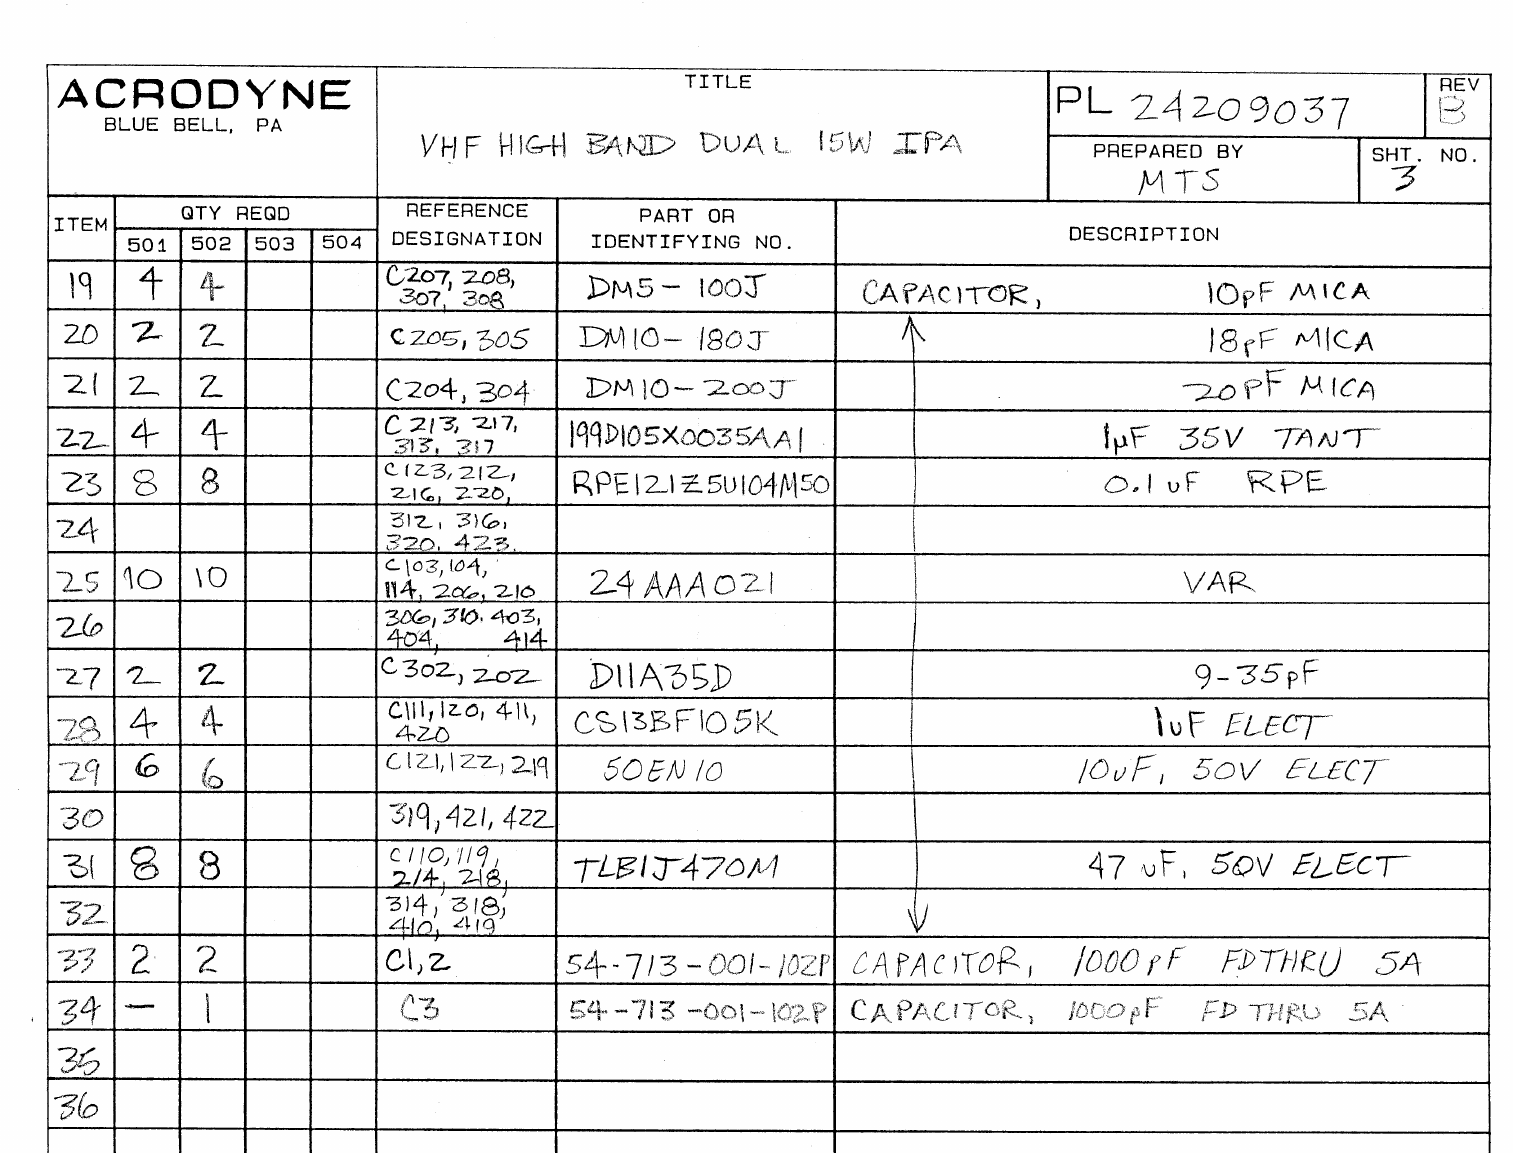 ACRODYNE
BLUE BELL, PA
TITLE
VHF HIGH BAND DUAL 15W IPA
PL 24209037
REV
B
PREPARED BY
MTS
SHT. NO.
3
ITEM
QTY REQD
501 502 503 504
REFERENCE
DESIGNATION
PART OR
IDENTIFYING NO.
DESCRIPTION
19 4 4 C207, 208, DM5-100J CAPACITOR, 10pF MICA
307, 308
20 2 2 C205, 305 DM10-180J 18pF MICA
21 2 2 C204, 304 DM10-200J 20PF MICA
22 4 4 C213, 217, 199D105X0035AA1 1µF 35V TANT
313, 317
23 8 8 C123, 212, RPE121Z5U104M50 0.1 uF RPE
216, 220,
24 312, 316,
320, 423.
25 10 10 C103, 104, 24AAA021 VAR
114, 206, 210
26 306, 310. 403,
404, 414
27 2 2 C302, 202 D11A35D 9-35pF
28 4 4 C111, 120, 411, CS13BF105K 1uF ELECT
420
29 6 6 C121, 122, 219 50EN10 10uF, 50V ELECT
30 319, 421, 422
31 8 8 C110, 119, TLB1J470M 47 uF, 50V ELECT
214, 218,
32 314, 318,
410, 419
33 2 2 C1, 2 54-713-001-102P CAPACITOR, 1000pF FDTHRU 5A
34 — 1 C3 54-713-001-102P CAPACITOR, 1000pF FD THRU 5A
35
36